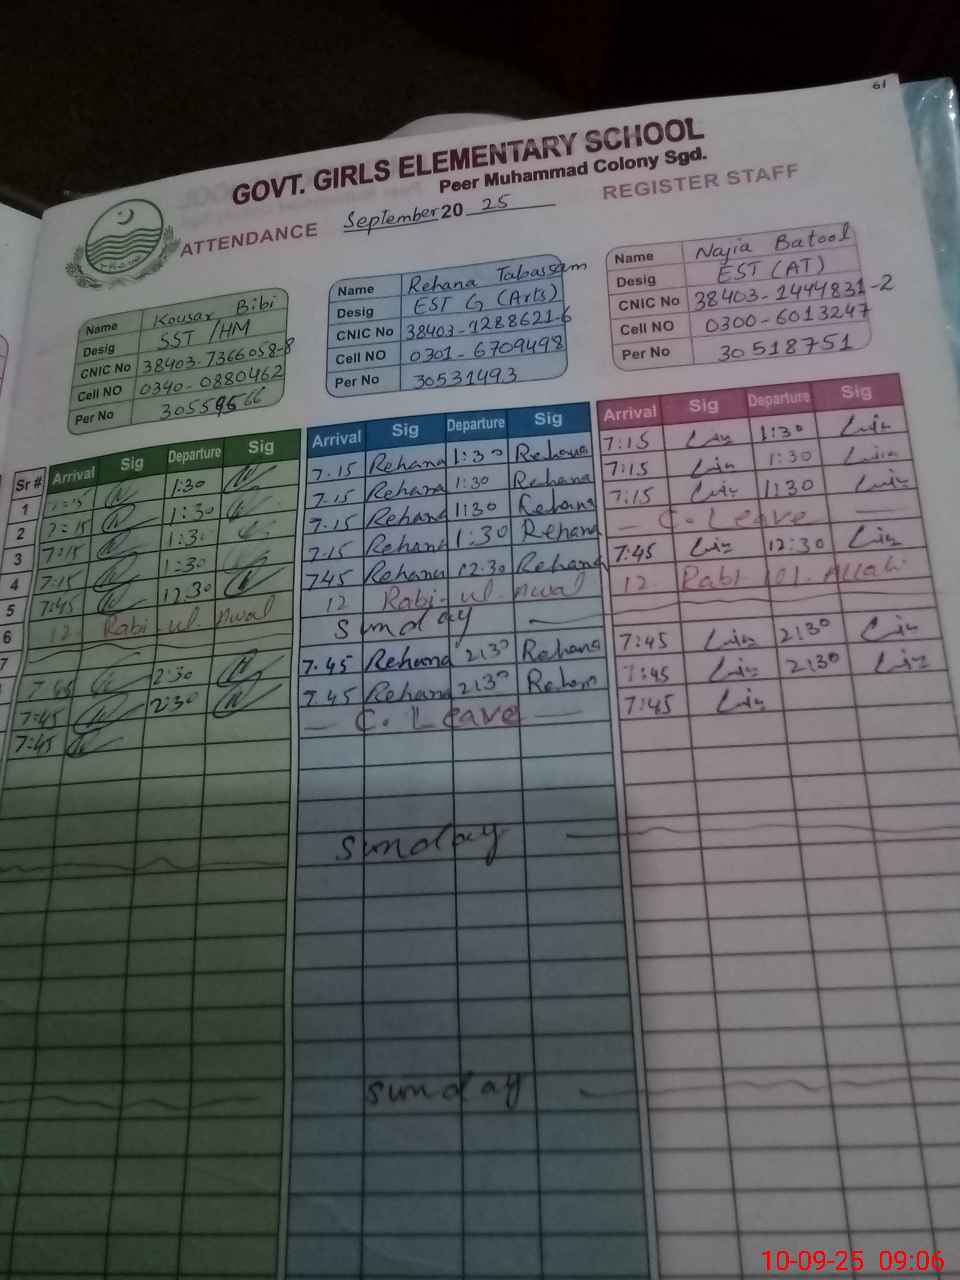 61
GOVT. GIRLS ELEMENTARY SCHOOL
Peer Muhammad Colony Sgd.
ATTENDANCE September 20 25 REGISTER STAFF
Name Kousar Bibi
Desig SST /HM
CNIC No 38403-7366058-8
Cell NO 0340-0880462
Per No
Name Rehana Tabassam
Desig EST G (Arts)
CNIC No 38403-7288621-6
Cell NO 0301-6709498
Per No 30531493
Name Najia Batool
Desig EST (AT)
CNIC No 38403-1444831-2
Cell NO 0300-6013247
Per No 30518751
Sr # Arrival Sig Departure Sig
1 1:30
2 7:15 1:30
3 7:15 1:30
4 7:15 1:30
5 7:45 12:30
6 12 Rabi ul Awal
7
7:45 2:30
7:45 2:30
7:45
Arrival Sig Departure Sig
7.15 Rehana 1:30 Rehana
7.15 Rehana 1:30 Rehana
7.15 Rehana 1:30 Rehana
7.15 Rehana 1:30 Rehana
745 Rehana 12.30 Rehana
12 Rabi-ul. Awal
Sunday
7.45 Rehana 2:30 Rehana
7.45 Rehana 2:30 Rehana
C. Leave
Sunday
Sunday
Arrival Sig Departure Sig
7:15 1:30
7:15 1:30
7:15 1:30
C. Leave
7:45 12:30
12. Rabi
7:45 2:30
7:45 2:30
7:45
10-09-25 09:06